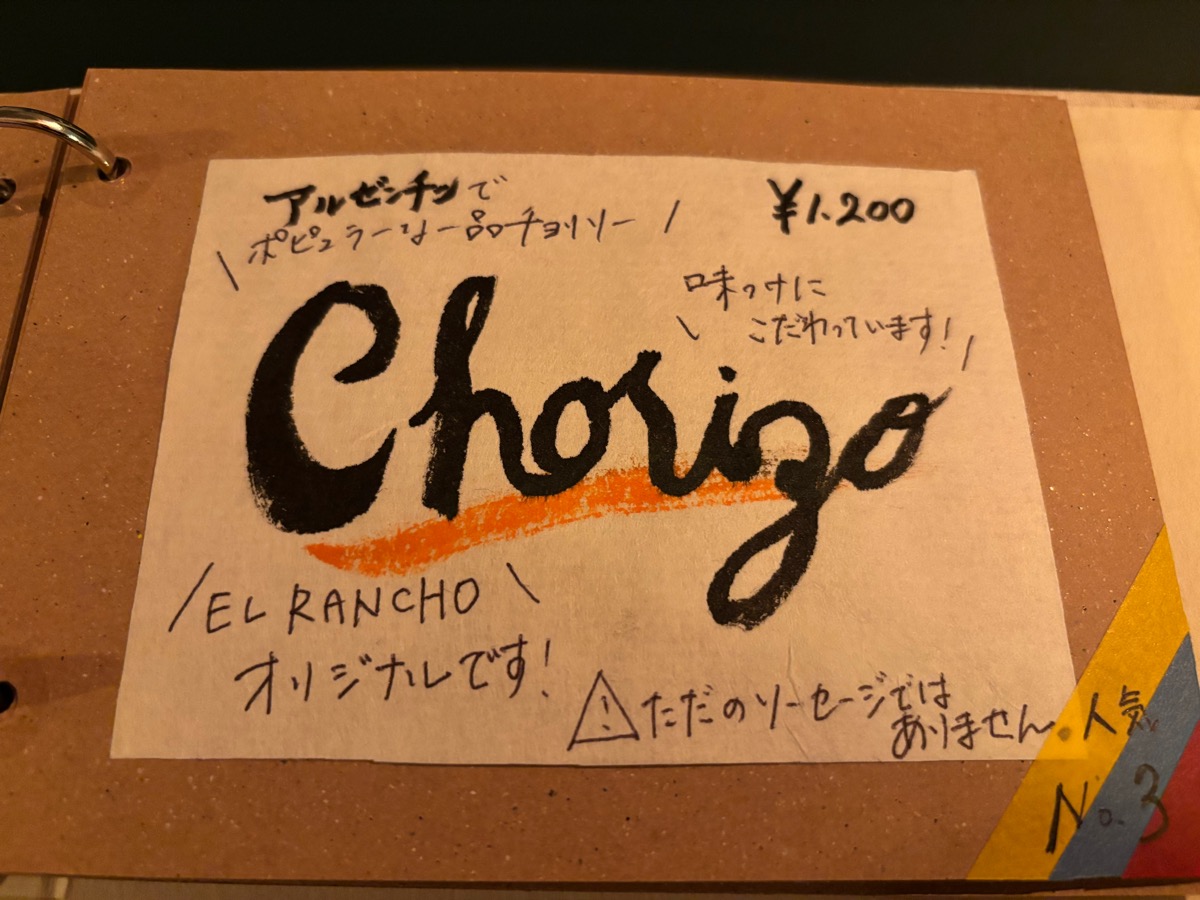 アルゼンチンで
ポピュラーな一品チョリソー
¥1.200
味つけに
こだわっています!
Chorizo
EL RANCHO
オリジナルです!
⚠ただのソーセージでは
ありません。
人気
No.3